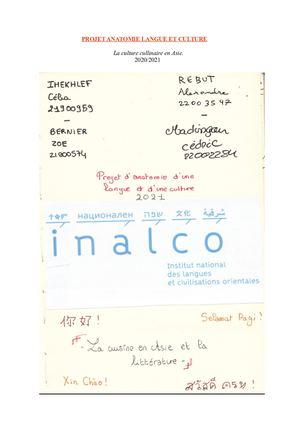 PROJET ANATOMIE LANGUE ET CULTURE
La culture cullinaire en Asie.
2020/2021
IHEKHLEF
Célia
21900959
–
BERNIER
ZOE
21800574
REBUT
Alexandre
22003547
–
Madingan
Cédric
Projet d'anatomie d'une
langue et d'une culture
2021
национален שפה 文化
inalco
Institut national
des langues
et civilisations orientales
你 好 !
Selamat Pagi !
- La cuisine en Asie et la
littérature -
Xin Chào !
สวัสดี ครับ !